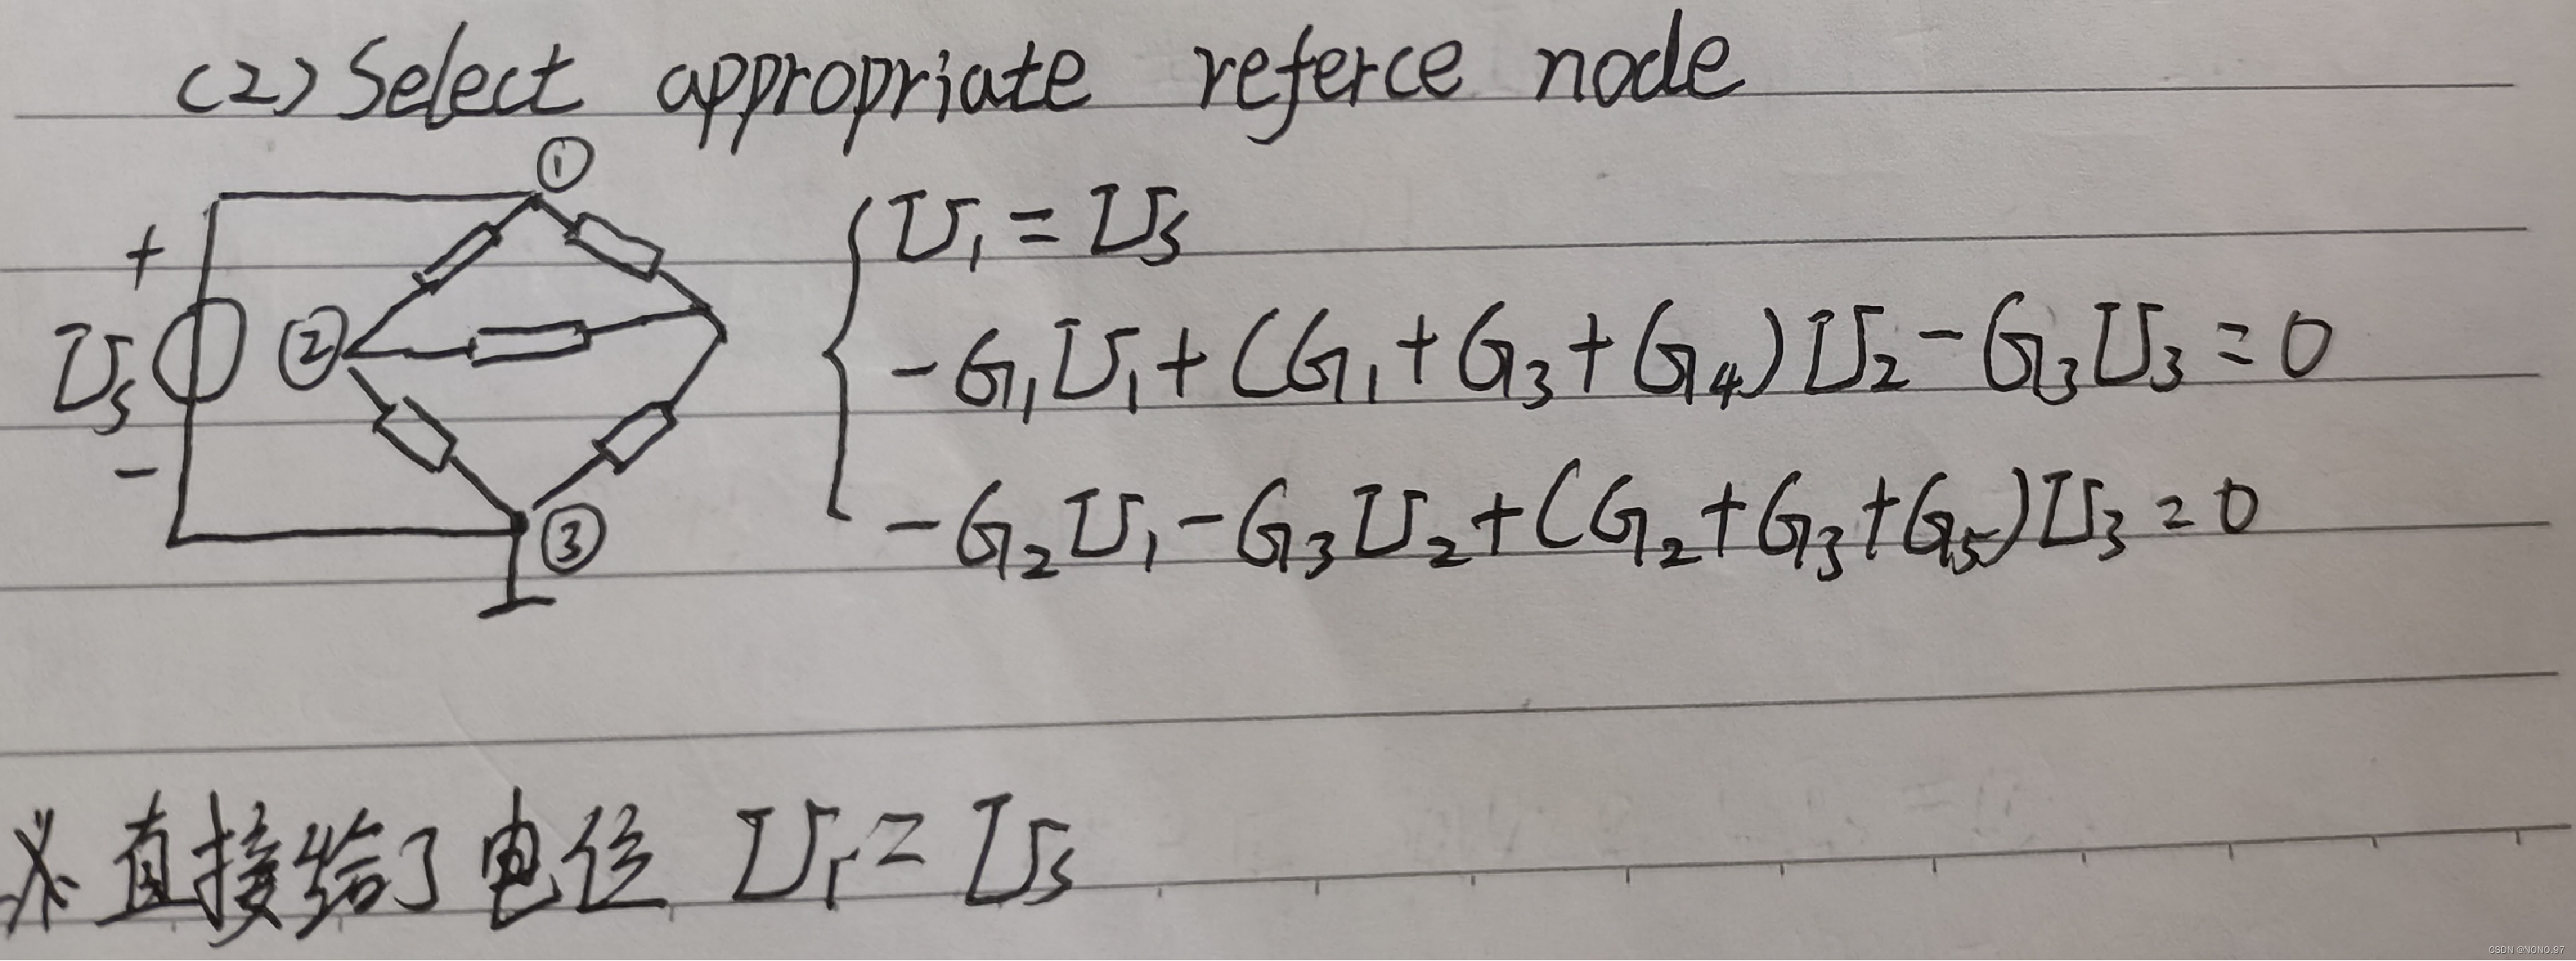 (2) Select appropriate referce node
①
U₁ = Us
+
②
Us
-G₁U₁+(G₁+G₃+G₄)U₂-G₃U₃=0
−
③
-G₂U₁-G₃U₂+(G₂+G₃+G₅)U₃=0
※直接给了电位 U₁=Us
CSDN @NONO.97